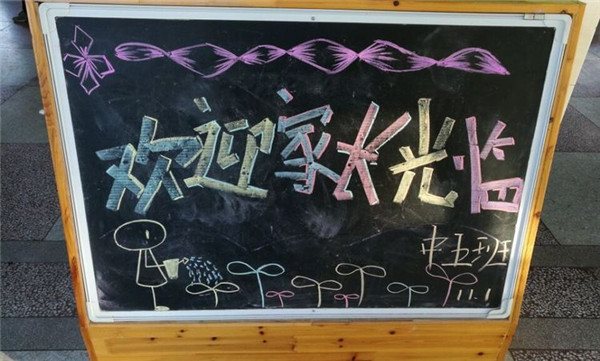 欢迎家长光临
中五班
11.1